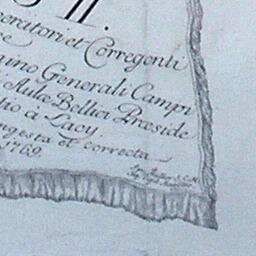 II.
peratori et Corregenti
ce
imo Generali Campi
i Aulæ Bellici Præside
tio à Lacy
ngesta et correcta
1769.